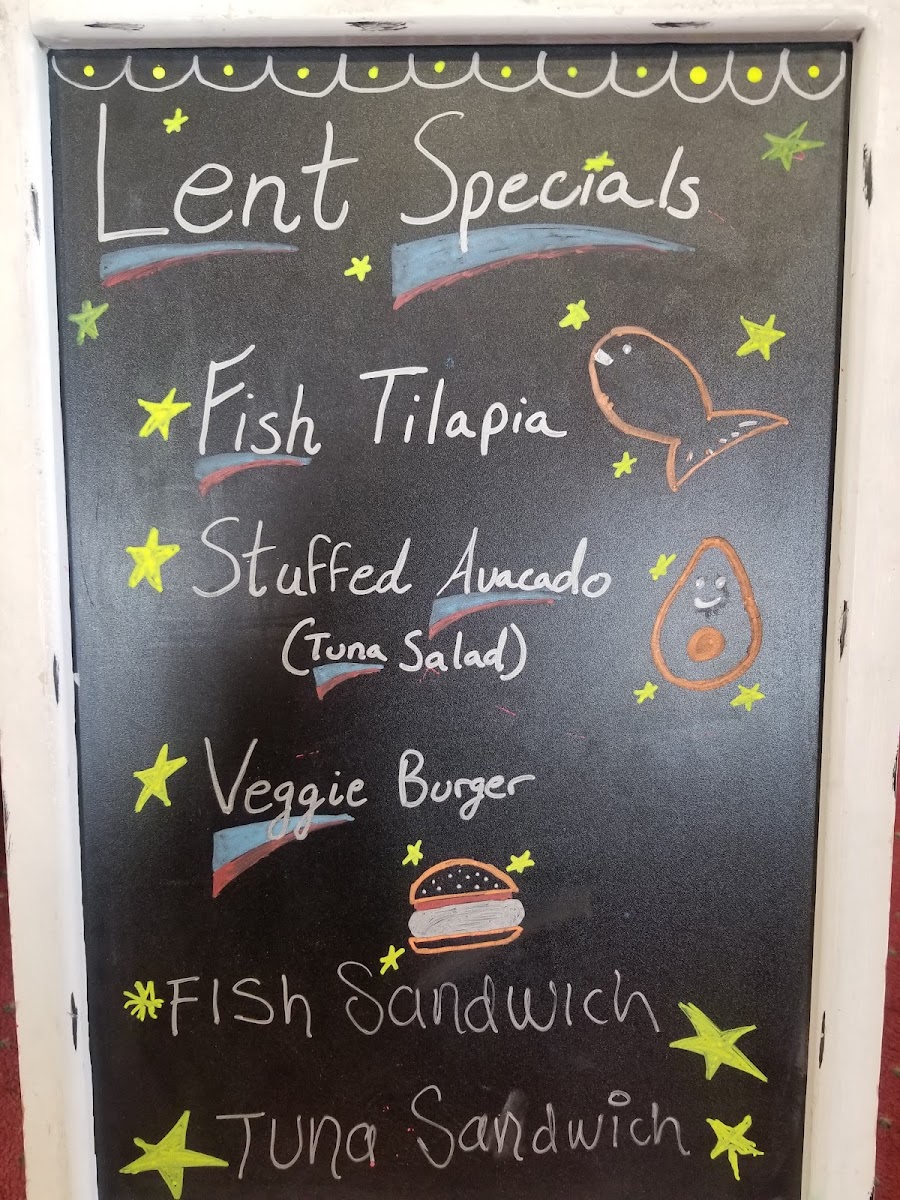 Lent Specials
Fish Tilapia
Stuffed Avacado
(Tuna Salad)
Veggie Burger
FISh Sandwich
Tuna Sandwich